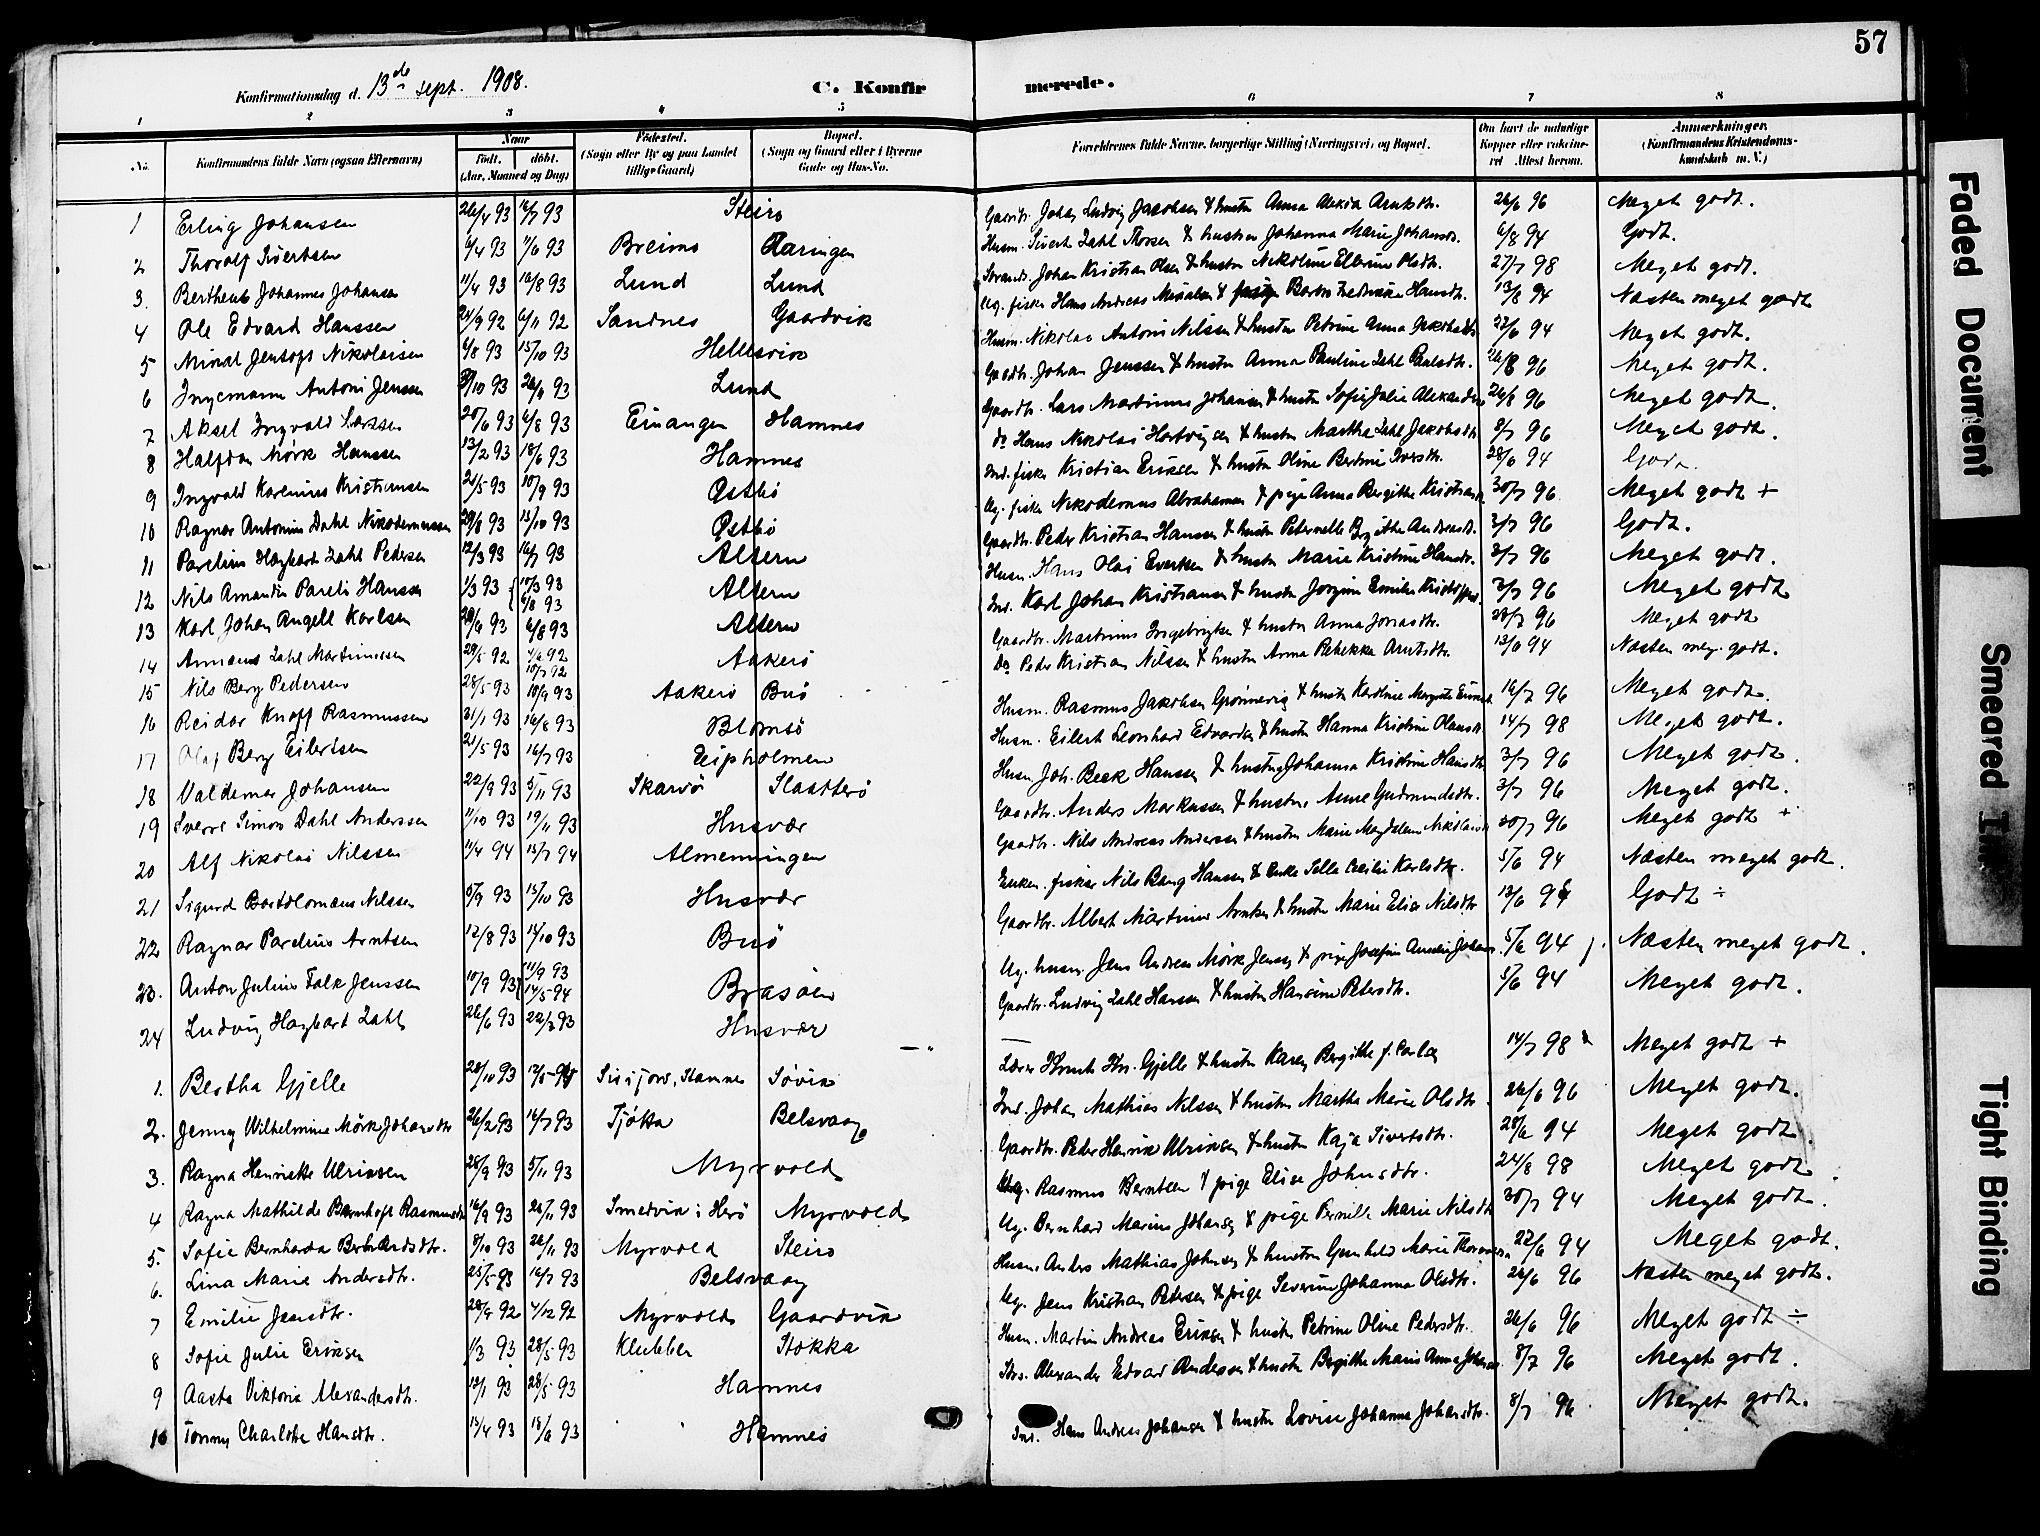 57
Konfirmationsdag d. 13de sept. 1908.
C. Konfirmerede.
1 2 3 4 5 6 7 8
No.
Konfirmandens fulde Navn (ogsaa Efternavn)
Naar
Født. døbt.
(Aar, Maaned og Dag)
Fødested.
(Sogn eller By og paa Landet tillige Gaard)
Bopæl.
(Sogn og Gaard eller i Byerne Gade og Hus-No.
Forældrenes fulde Navne, borgerlige Stilling (Næringsvei) og Bopæl.
Om havt de naturlige Kopper eller vaccineret Attest herom.
Anmærkninger.
(Konfirmandens Kristendomskundskab m. V.)
1 Erling Johansen 26/4 93 16/7 93 Steiro Johan Ludvig Jacobsen & hustru Anna Alexia Arntsdtr. 26/6 96 Meget godt.
2 Thorolf Sivertsen 6/4 93 11/6 93 Breimo Husm. Sivert Zahl Thorsen & hustru Johanna Marie Johansdtr. 6/8 94 Godt.
3. Bertheus Johannes Johansen 11/4 93 16/8 93 Lund Lund Johan Kristian Olsen & hustru Nikoline Ellerine Olsdtr. 27/7 98 Meget godt.
4 Ole Edvard Hanssen 24/9 92 6/11 92 Sandnes Gaardvik Ug. fisker Hans Andreas & Hansdtr. 13/8 94 Næsten meget godt
5 Nikolaisen 6/8 93 15/10 93 Hellesvik Husm. Nikolai Antoni Nilssen & hustru Petrine Anna Jakobsdtr. 27/6 94 Meget godt.
6 Ingemann Antoni Jenssen 93 Lund Gaardbr. Johan Jenssen & hustru Anna Pauline Zahl Paulsdtr. 26/8 96 Meget godt.
7 Aksel Ingvald Larssen 20/6 93 6/8 93 Einangen Hamnes Gaardbr. Lars Martinus Johansen & hustru Sofie Julie 26/8 96 Meget godt.
8 Halfdan Mørk Hanssen 13/2 93 18/6 93 Hamnes do Hans Nikolai Hartvigsen & hustru Martha Zahl Jakobsdtr 8/7 96 Meget godt.
9 Ingvald Karenius Kristiansen 21/5 93 10/9 93 Østbø Ind. fisker Kristian Eriksen & hustru Oline Berdine Iversdtr. 28/6 94 Godt.
10 Ragnar Antonius Dahl Nikodemussen 29/8 93 15/10 93 Østbø Ug. fisker Nikodemus Abrahamsen & pige Anna Bergitte 30/7 96 Meget godt +
11 Parelius Hagbart Zahl Pedersen 12/3 93 16/7 93 Altern Gaardbr. Peder Kristian Hanssen & hustru Peternelle Andreasd. 3/7 96 Godt.
12 Nils Amandus Pareli Hanssen 1/3 93 { 10/3 93 6/8 93 Altern Husm. Hans Olai Evertsen & hustru Marie Kristine Hansdtr. 3/7 96 Meget godt.
13 Karl Johan Angell Karlsen 93 6/8 93 Altern Ind. Karl Johan Kristiansen & hustru Emilie 3/7 96 Meget godt
14 Zahl Martinussen 29/5 92 92 10/7 92 Aakerø Gaardbr. Martinus Ingebrigtsen & hustru Anna Jonasdtr. 96 Meget godt
15 Nils Berg Pedersen 28/5 93 10/9 93 Aakerø Buø Do Peder Kristian Nilssen & hustru Anna Rebekka Arntsdtr. 13/6 94 Næsten meg. godt.
16 Reidar Knoff Rasmussen 31/1 93 16/8 93 Blomsø Husm. Rasmus Jakobsen Grønnevig & hustru Karoline 16/7 96 Meget godt.
17 Olaf Berg Eilertsen 21/5 93 16/7 93 Husm. Eilert Leonhard Edvardsen & hustru Hanna Kristine 14/7 98 Meget godt.
18 Valdemar Johansen 22/9 93 5/11 93 Skarvø Slaatterø Husm. Joh. Beck Hanssen & hustru Johanna Kristine Hansdtr 3/7 96 Meget godt.
19 Sverre Simon Dahl Anderssen 11/10 93 19/11 93 Husvær Gaardbr. Anders Markussen & hustru Anne Gudmundsdtr. 3/7 96 Meget godt.
20 Alf Nikolai Nilssen 11/4 94 15/7 94 Almenningen Gaardbr. Nils Andreas Anderssen & hustru Marie Magdalena 30/7 96 Meget godt +
21 Sigurd Bartolomæus Nilssen 5/9 93 15/10 93 Husvær fisker Nils Bang Hanssen & Cecilie Karlsdtr. 5/6 94 Næsten meget godt.
22 Ragnar Parelius Arntsen 12/8 93 14/10 93 Buø Gaardbr. Albert Martinus Arntsen & hustru Marie Elise Nilsdtr 13/6 94 Godt ÷
23. Anton Julius Falk Jenssen 10/9 93 { 11/9 93 14/5-94 Brasøen Ug. husm. Jens Andreas Mørk Jenssen & pige Josefine 5/6 94 Næsten meget godt.
24 Ludvig Hagbart Zahl 26/6 93 93 Husvær Gaardbr. Ludvig Zahl Hanssen & hustru Hansine Petersdtr. 5/6 94 Meget godt.
1. Bertha Gjelle 28/10 93 Stamnes Søvik Lærer Gjelle & hustru Karen Bergitte f. 14/7 98 Meget godt +
2. Jenny Wilhelmine Mørk Johansdtr 26/2 93 16/7 93 Tjøtta Belsvaag Ind. Johan Mathias Nilssen & hustru Martha Marie Olsdtr. 26/6 96 Meget godt.
3. Ragna Henriette Ulriksen 28/9 93 5/11 93 Myrvold Gaardbr. Peder Henrik Ulriksen & hustru Kaja Sivertsdtr. 28/6 94 Meget godt.
4 Ragna Mathilde Rasmusdtr 16/9 93 26/11 93 Smedvik i Herø Myrvold Ug. Rasmus Berntsen & pige Elise Johnsdtr. 24/8 98 Meget godt.
5. Sofie Bernharda Bernhardsdtr. 8/10 93 26/11 93 Myrvold Steiro Ug. Bernhard Marius Johansen & pige Pernille Marie Nilsdtr 30/7 94 Meget godt.
6. Lina Marie Andersdtr. 25/5 93 16/7 93 Belsvaag Husm. Anders Mathias Johnsen & hustru Gunhild Marie 27/6 94 Meget godt.
7 Emilie Jensdtr. 92 4/12 92 Myrvold Gaardvik Ug. Jens Kristian Petersen & pige Severine Johanna Olsdtr. 26/6 96 Næsten meget godt.
8 Sofie Julie Eriksen 1/3 93 28/5 93 Klubben Stokka Husm. Martin Andreas Eriksen & hustru Petrine Oline Pedersdtr. 26/6 96 Meget godt ÷
9 Aasta Viktoria Alexandersdtr. 12/1 93 28/5 93 Hamnes Alexander Edvard Anderssen & hustru Bergitte Marie Anna 8/7 96 Meget godt.
10 Tommy Charlotte Hansdtr. 15/4 93 18/6 93 Hamnes Ind. Hans Andreas Johansen & hustru Lovise Johanna Johansdtr. 8/7 96 Meget godt.
Faded Document
Smeared Ink
Tight Binding